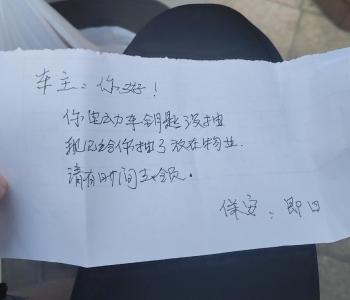 车主：你好！
你电动车钥匙没抽
我已给你抽了放在物业.
请有时间去领.
保安：即日